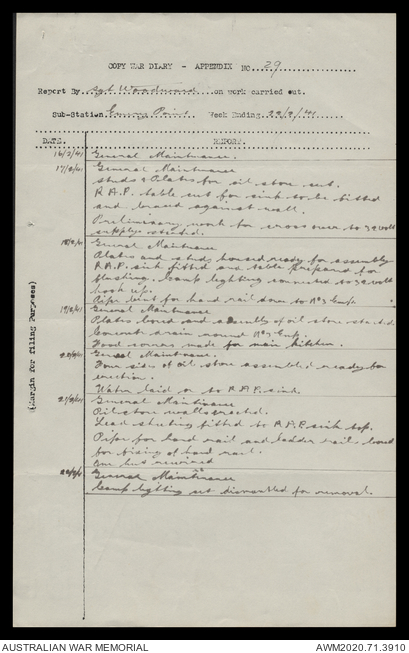 COPY WAR DIARY - APPENDIX NO. 29
Report By Sgt Woodward on work carried out.
Sub-Station Emery Point Week Ending 22/2/41
DATE. REPORT.
16/2/41 General Maintenance.
17/2/41 General Maintenance
studs & Plates for oil store cut.
R.A.P. table cut for sink to be fitted
and braced against wall.
Preliminary work for cross over to 32 volt
supply started.
18/2/41 General Maintenance
Plates and studs housed ready for assembly
R.A.P. sink fitted and table prepared for
flushing. Camp lighting connected to 32 volt
hook up.
Pipe bent for hand rail down to No 3 Emp.
19/2/41 General Maintenance
Plates bored and assembly of oil store started
Concrete drain round No 7 Emp.
Food covers made for main kitchen.
20/2/41 General Maintenance.
Four sides of oil store assembled ready for
erection.
Water laid on to R.A.P. sink.
21/2/41 General Maintenance
Oil store walls erected.
Lead sheeting fitted to R.A.P. sink top.
Pipe for hand rail and ladder rail bored
for fixing of hand rail.
One hut rewired
22/2/41 General Maintenance
Camp lighting set dismantled for removal.
(Margin for filing Purposes)
AUSTRALIAN WAR MEMORIAL AWM2020.71.3910